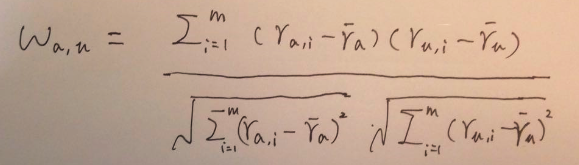 w_{a,u} = \frac{\sum_{i=1}^{m} (r_{a,i} - \bar{r}_a)(r_{u,i} - \bar{r}_u)}{\sqrt{\sum_{i=1}^{m} (r_{a,i} - \bar{r}_a)^2} \sqrt{\sum_{i=1}^{m} (r_{u,i} - \bar{r}_u)^2}}